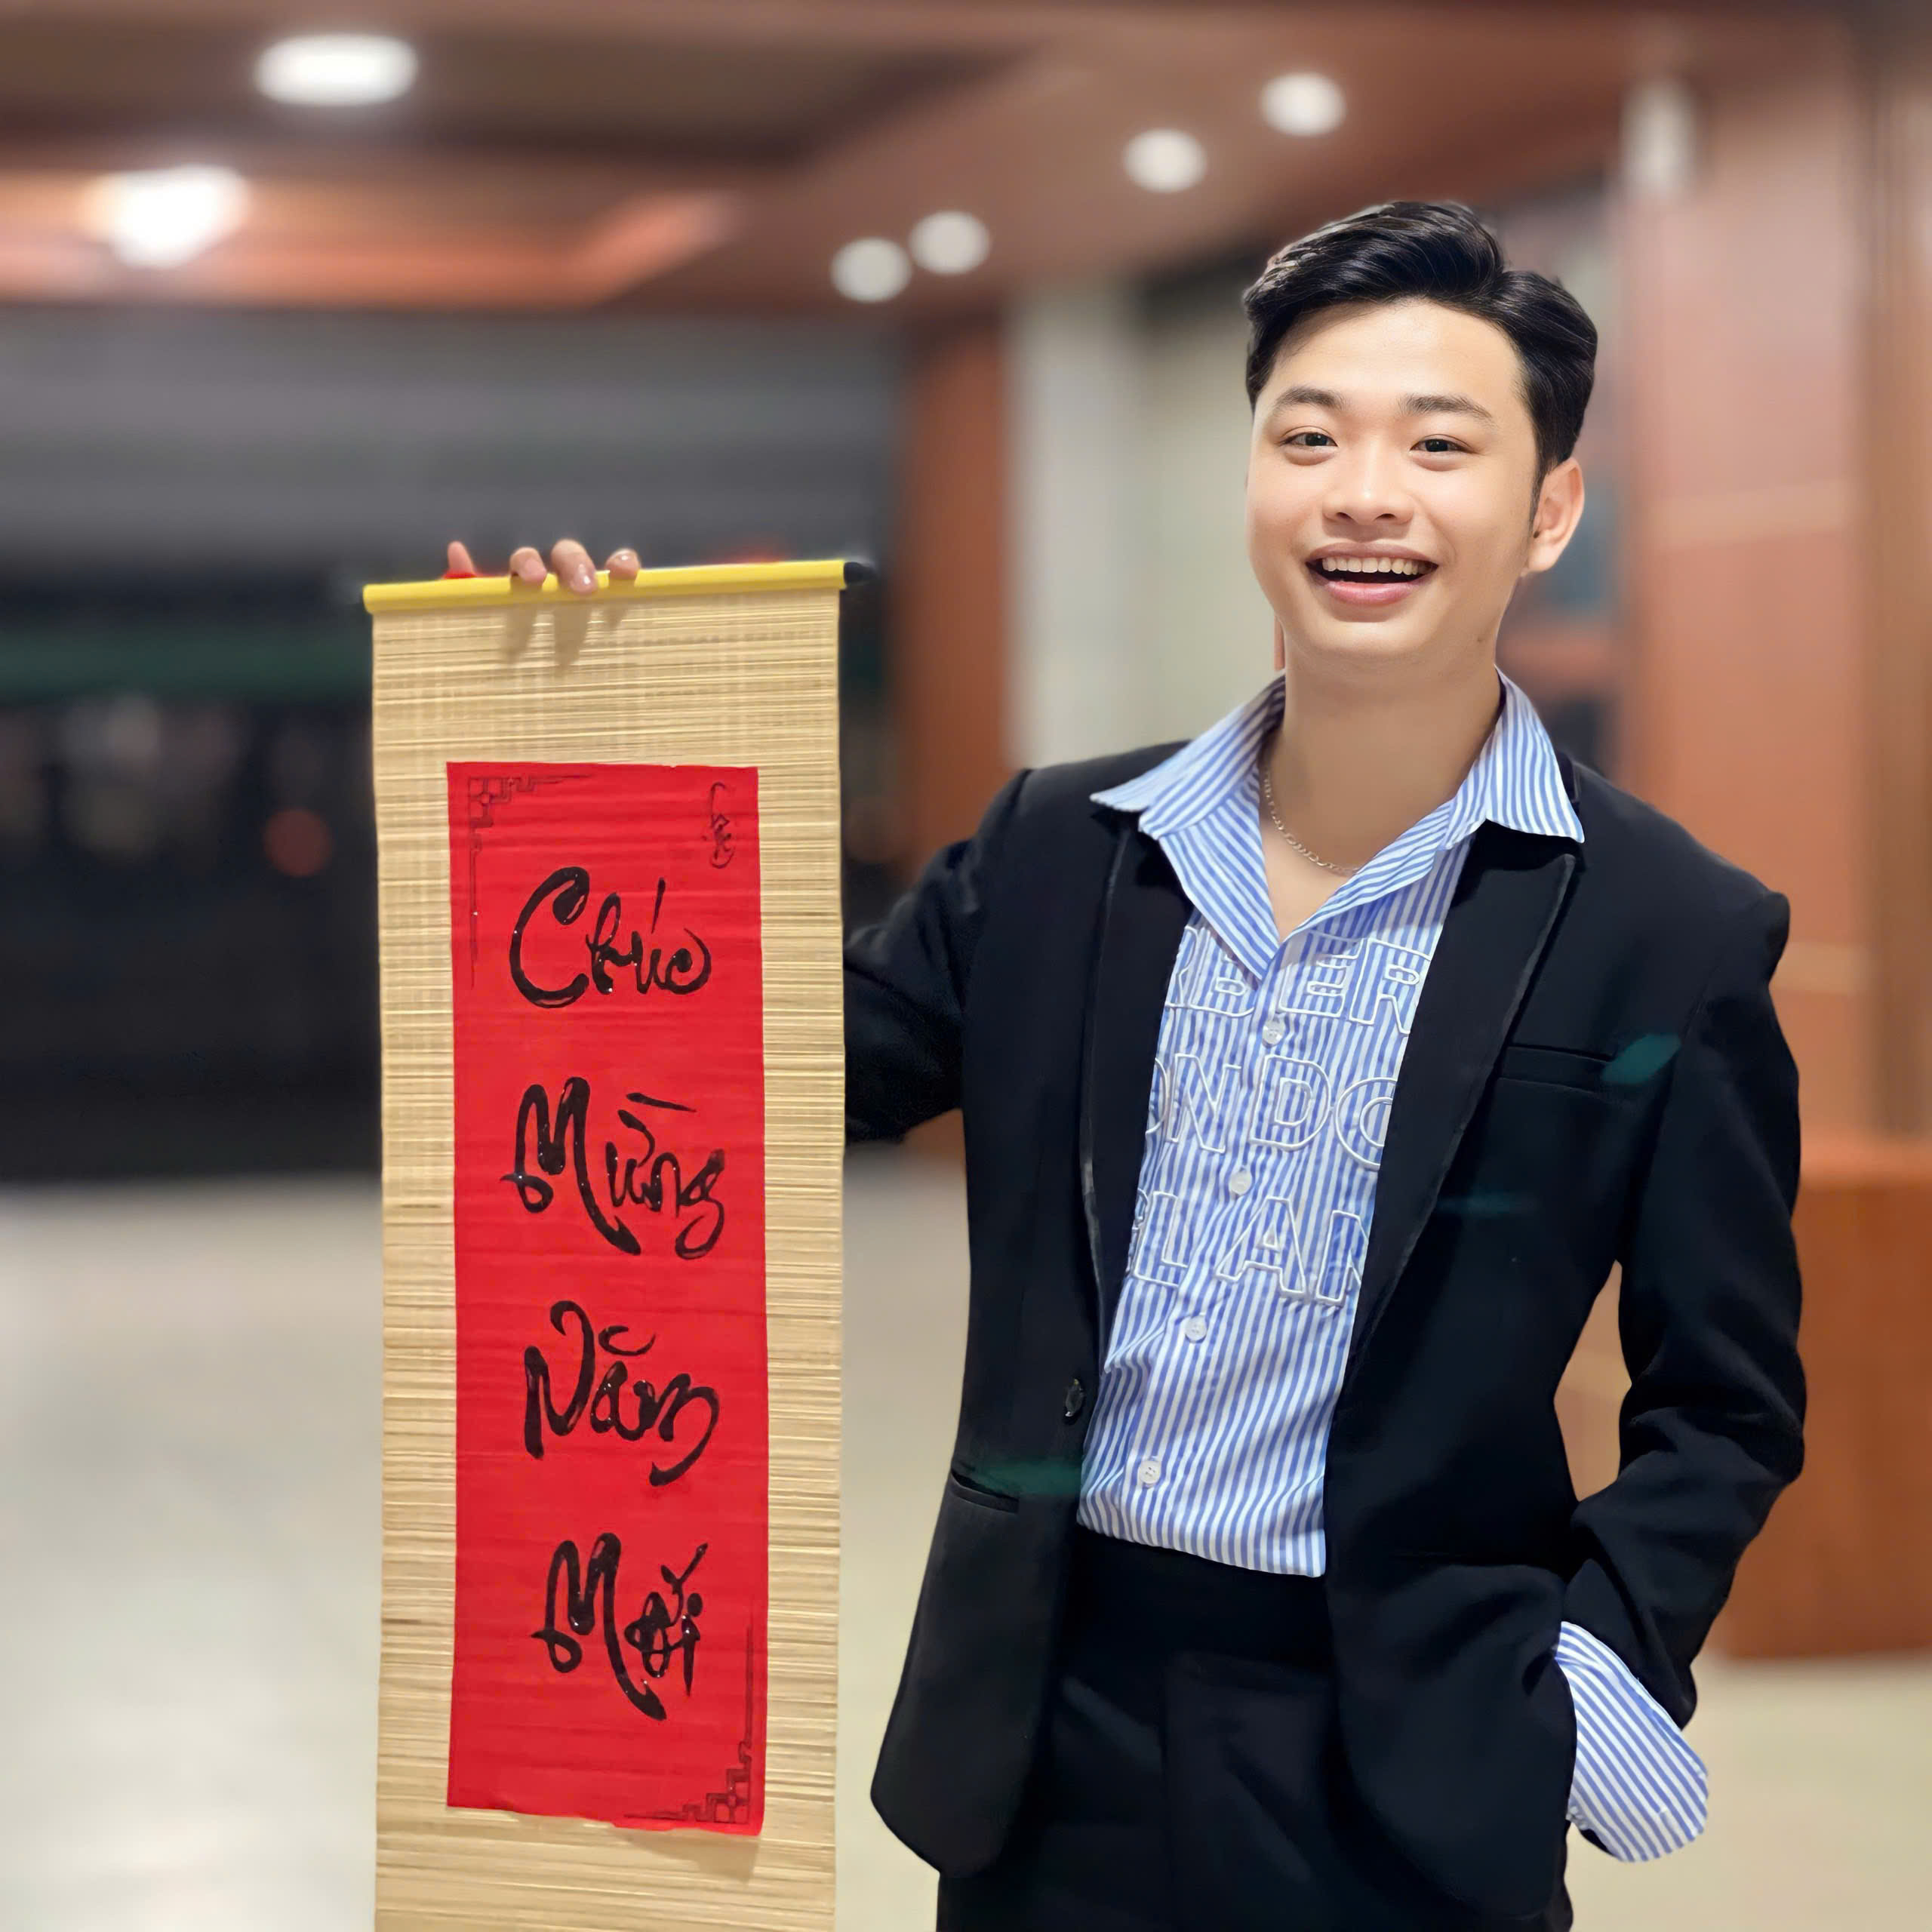 Chúc
Mừng
Năm
Mới
BER
ONDO
GLAN